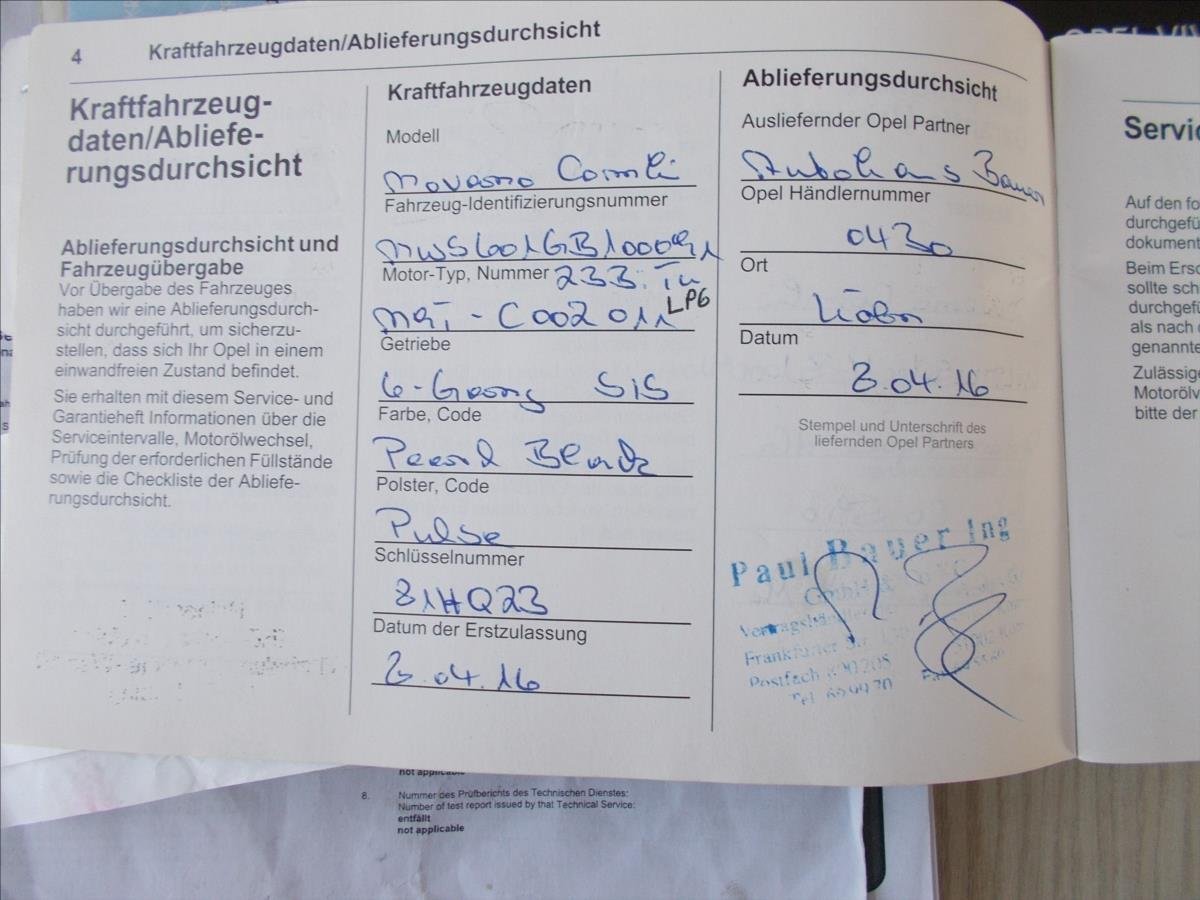 4 Kraftfahrzeugdaten/Ablieferungsdurchsicht
Kraftfahrzeug-
daten/Abliefe-
rungsdurchsicht
Ablieferungsdurchsicht und
Fahrzeugübergabe
Vor Übergabe des Fahrzeuges
haben wir eine Ablieferungsdurch-
sicht durchgeführt, um sicherzu-
stellen, dass sich Ihr Opel in einem
einwandfreien Zustand befindet.
Sie erhalten mit diesem Service- und
Garantieheft Informationen über die
Serviceintervalle, Motorölwechsel,
Prüfung der erforderlichen Füllstände
sowie die Checkliste der Abliefe-
rungsdurchsicht.
Kraftfahrzeugdaten
Modell
Movano Combi
Fahrzeug-Identifizierungsnummer
Motor-Typ, Nummer
LPG
C002011
Getriebe
6-Gang
Farbe, Code
Pearl Black
Polster, Code
Pulse
Schlüsselnummer
Datum der Erstzulassung
04.16
Ablieferungsdurchsicht
Ausliefernder Opel Partner
Autohaus Bauer
Opel Händlernummer
0430
Ort
Köln
Datum
04.16
Stempel und Unterschrift des
liefernden Opel Partners
Paul Bauer Ing
GmbH &
Frankfurter Str.
Postfach
Tel
Servic
Auf den fo
durchgefü
dokument
Beim Ersc
sollte sch
durchgefü
als nach
genannte
Zulässige
Motorölv
bitte der
not applicable
8. Nummer des Prüfberichts des Technischen Dienstes:
Number of test report issued by that Technical Service:
entfällt
not applicable